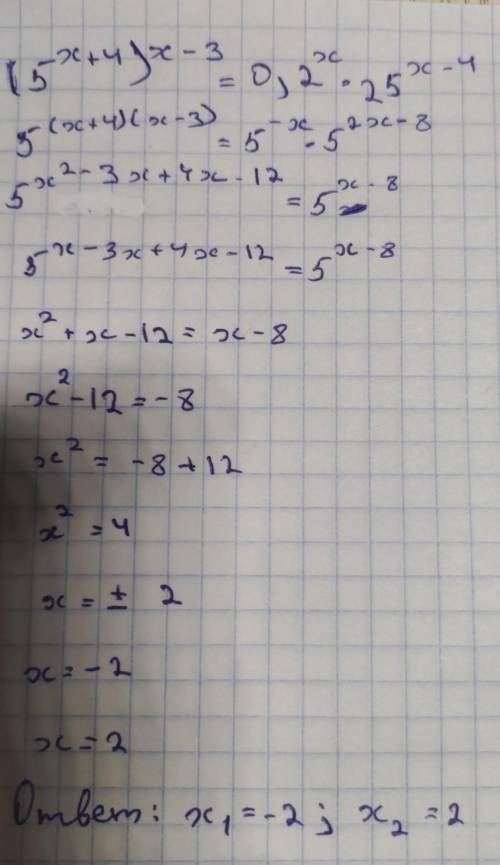 (5^{x+4})^{x-3} = 0,2^x · 25^{x-4}
5^{(x+4)(x-3)} = 5^{-x} · 5^{2x-8}
5^{x^2-3x+4x-12} = 5^{x-8}
5^{x-3x+4x-12} = 5^{x-8}
x^2+x-12 = x-8
x^2-12=-8
x^2 = -8+12
x^2 = 4
x = ± 2
x=-2
x=2
Ответ: x_1=-2; x_2=2